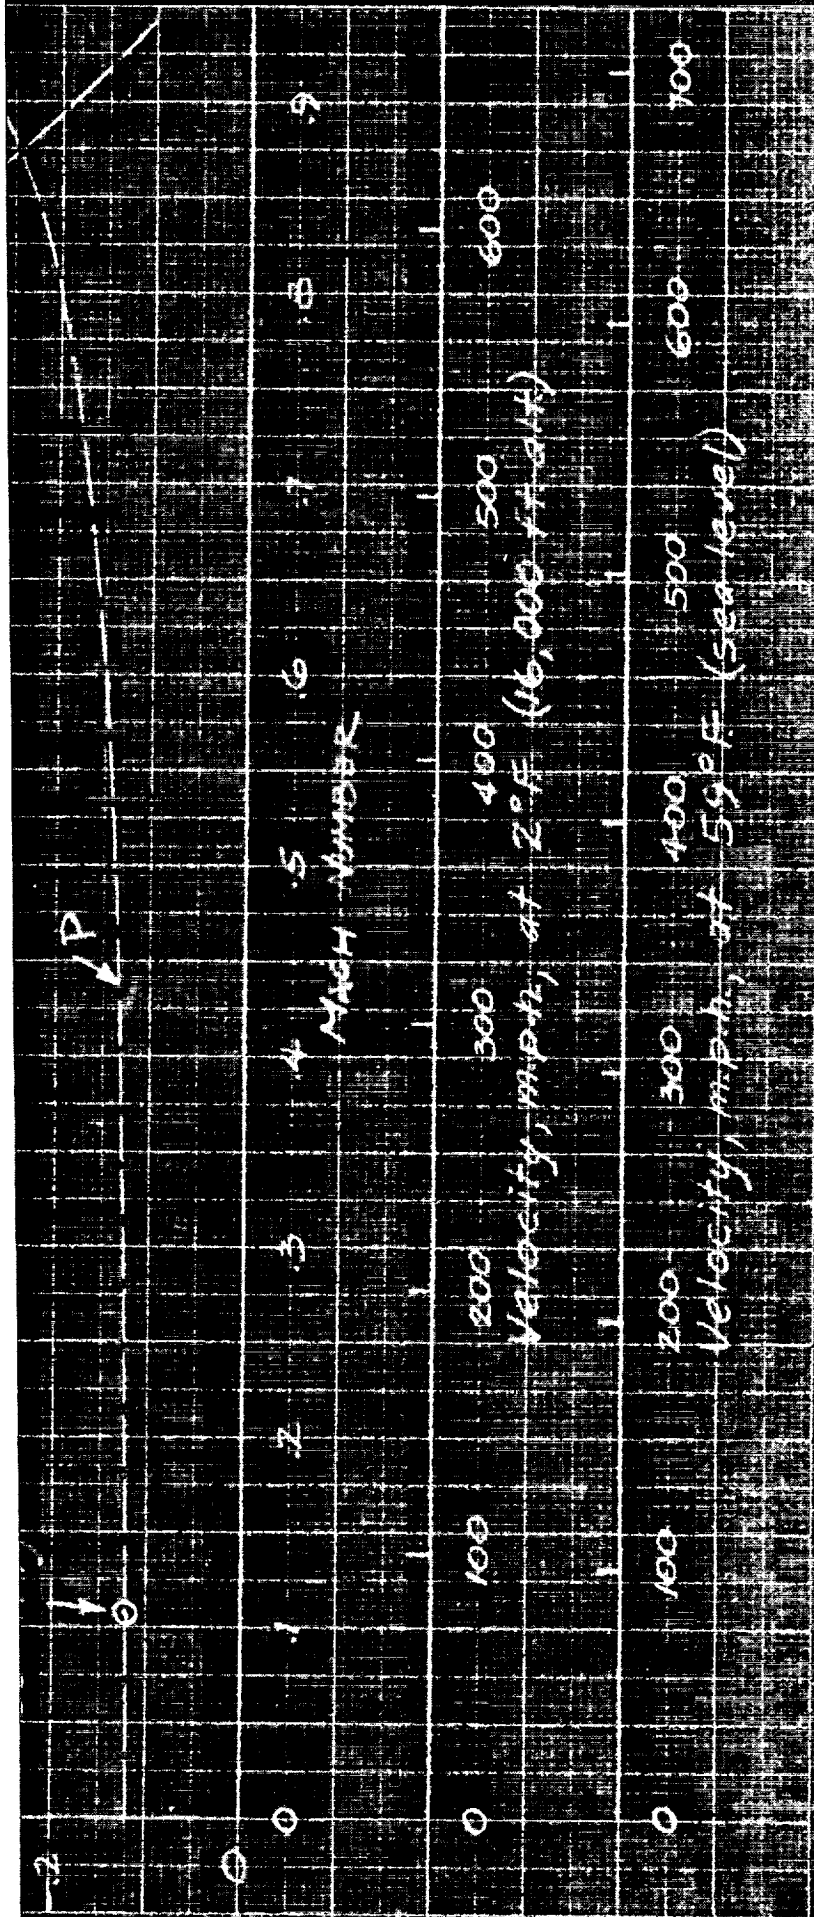 .2
P
0
0 .1 .2 .3 .4 .5 .6 .7 .8 .9
MACH NUMBER
0 100 200 300 400 500 600
Velocity, m.p.h., at 2°F. (16,000 ft alt.)
0 100 200 300 400 500 600 700
Velocity, m.p.h., at 59°F. (sea level)